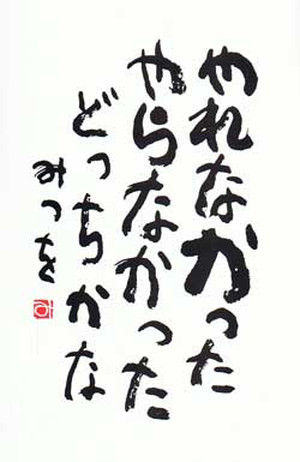 やれなかった
やらなかった
どっちかな
みつを
み